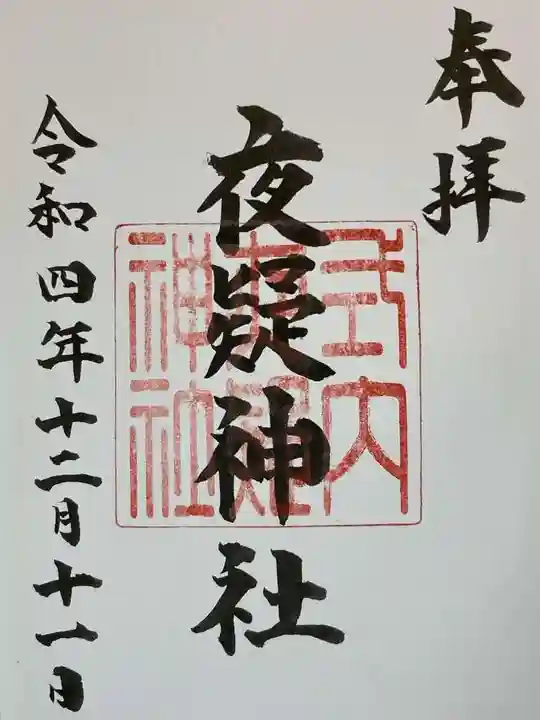 奉拝
夜疑神社
式内
夜疑
神社
令和四年十二月十一日